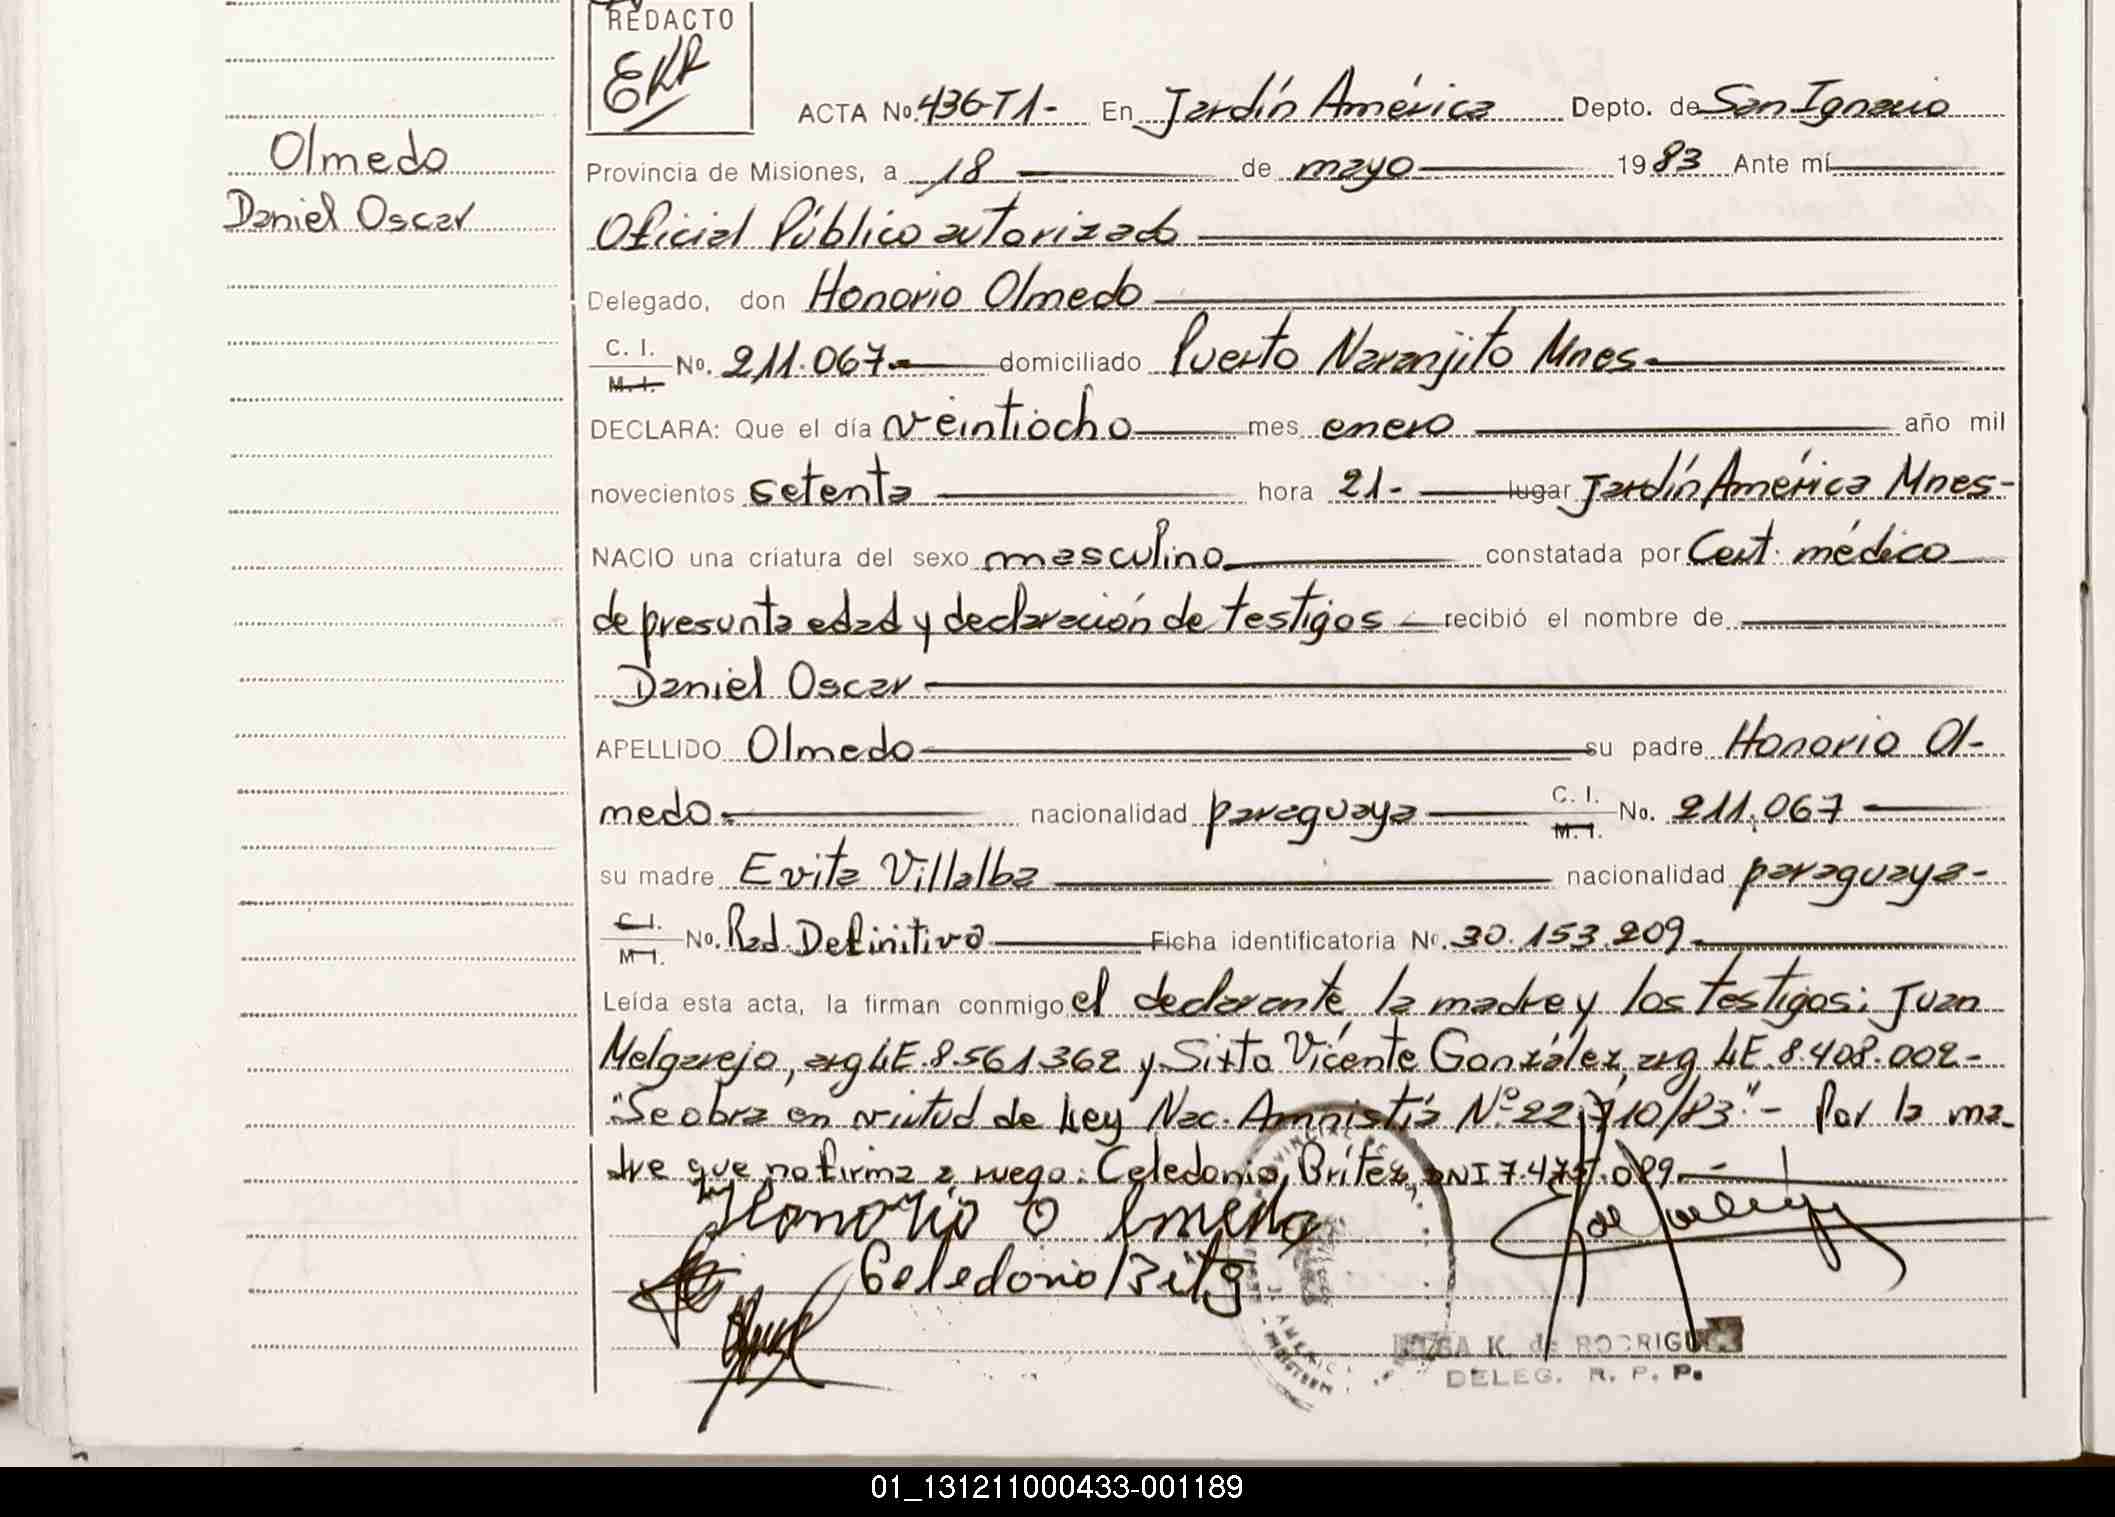 REDACTO
EKR
ACTA No. 436-T1- En Jardín América Depto. de San Ignacio
Olmedo
Daniel Oscar
Provincia de Misiones, a 18 de mayo 1983 Ante mí
Oficial Público autorizado
Delegado, don Honorio Olmedo
C. I.
M. I. No. 211.067 domiciliado Puerto Naranjito Mnes-
DECLARA: Que el día veintiocho mes enero año mil
novecientos setenta hora 21.- lugar Jardín América Mnes-
NACIO una criatura del sexo masculino constatada por Cert. médico
de presunta edad y declaración de testigos recibió el nombre de
Daniel Oscar
APELLIDO Olmedo su padre Honorio Ol-
medo nacionalidad paraguaya C. I.
M. I. No. 211.067
su madre Evita Villalba nacionalidad paraguaya-
C. I.
M I. No. Rad. Definitiva Ficha identificatoria No. 30.153.209
Leída esta acta, la firman conmigo el declarante la madre y los testigos: Juan
Melgarejo, arg LE.8.561362 y Sixto Vicente González, arg LE.8.408.002-
"Se obra en virtud de Ley Nac. Amnistía Nº 22.710/83"- Por la ma-
dre que no firma a ruego: Celedonio Britez, DNI 7.475.089.-
Honorio Olmedo
Celedonio Britez
K. de RODRIGUEZ
DELEG. R. P. P.
01_131211000433-001189